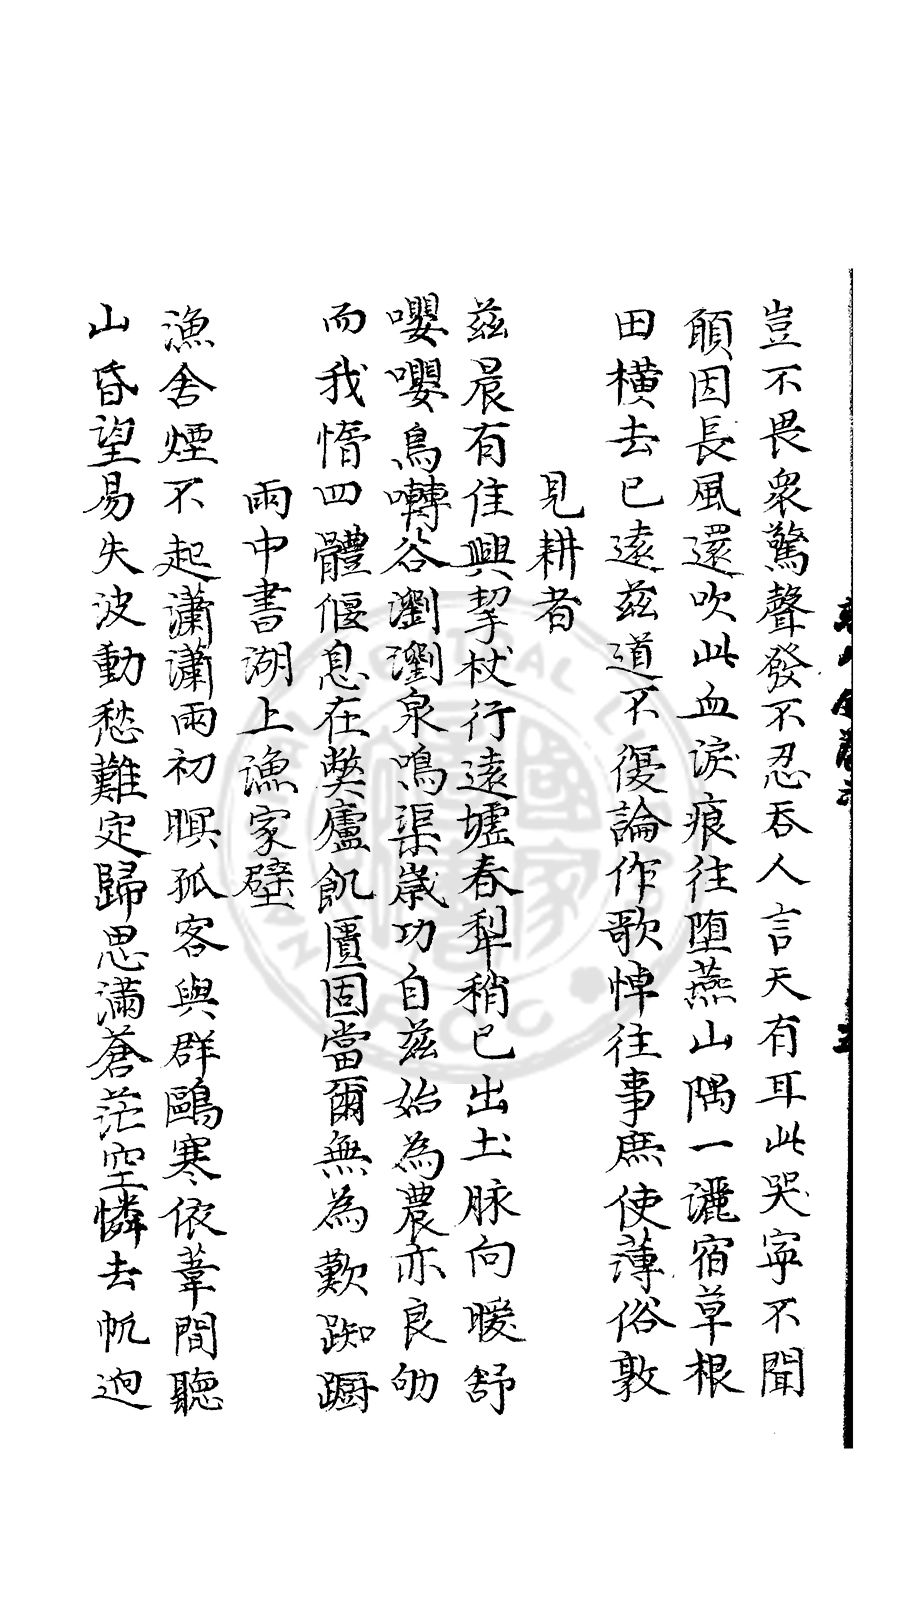 豈不畏衆驚聲發不忍吞人言天有耳此哭寧不聞
願因長風還吹此血淚痕往墮燕山隅一灑宿草根
田橫去已遠茲道不復論作歌悼往事庶使薄俗敦
見耕者
茲晨有佳興挈杖行遠墟春犁稍已出土脉向暖舒
嚶嚶鳥囀谷瀏瀏泉鳴渠歲功自茲始為農亦良劬
而我惰四體偃息在弊廬飢匱固當爾無為歎踟躕
雨中書湖上漁家壁
漁舍煙不起瀟瀟雨初暝孤客與群鷗寒依葦間聽
山昏望易失波動愁難定歸思滿蒼茫空憐去帆迥